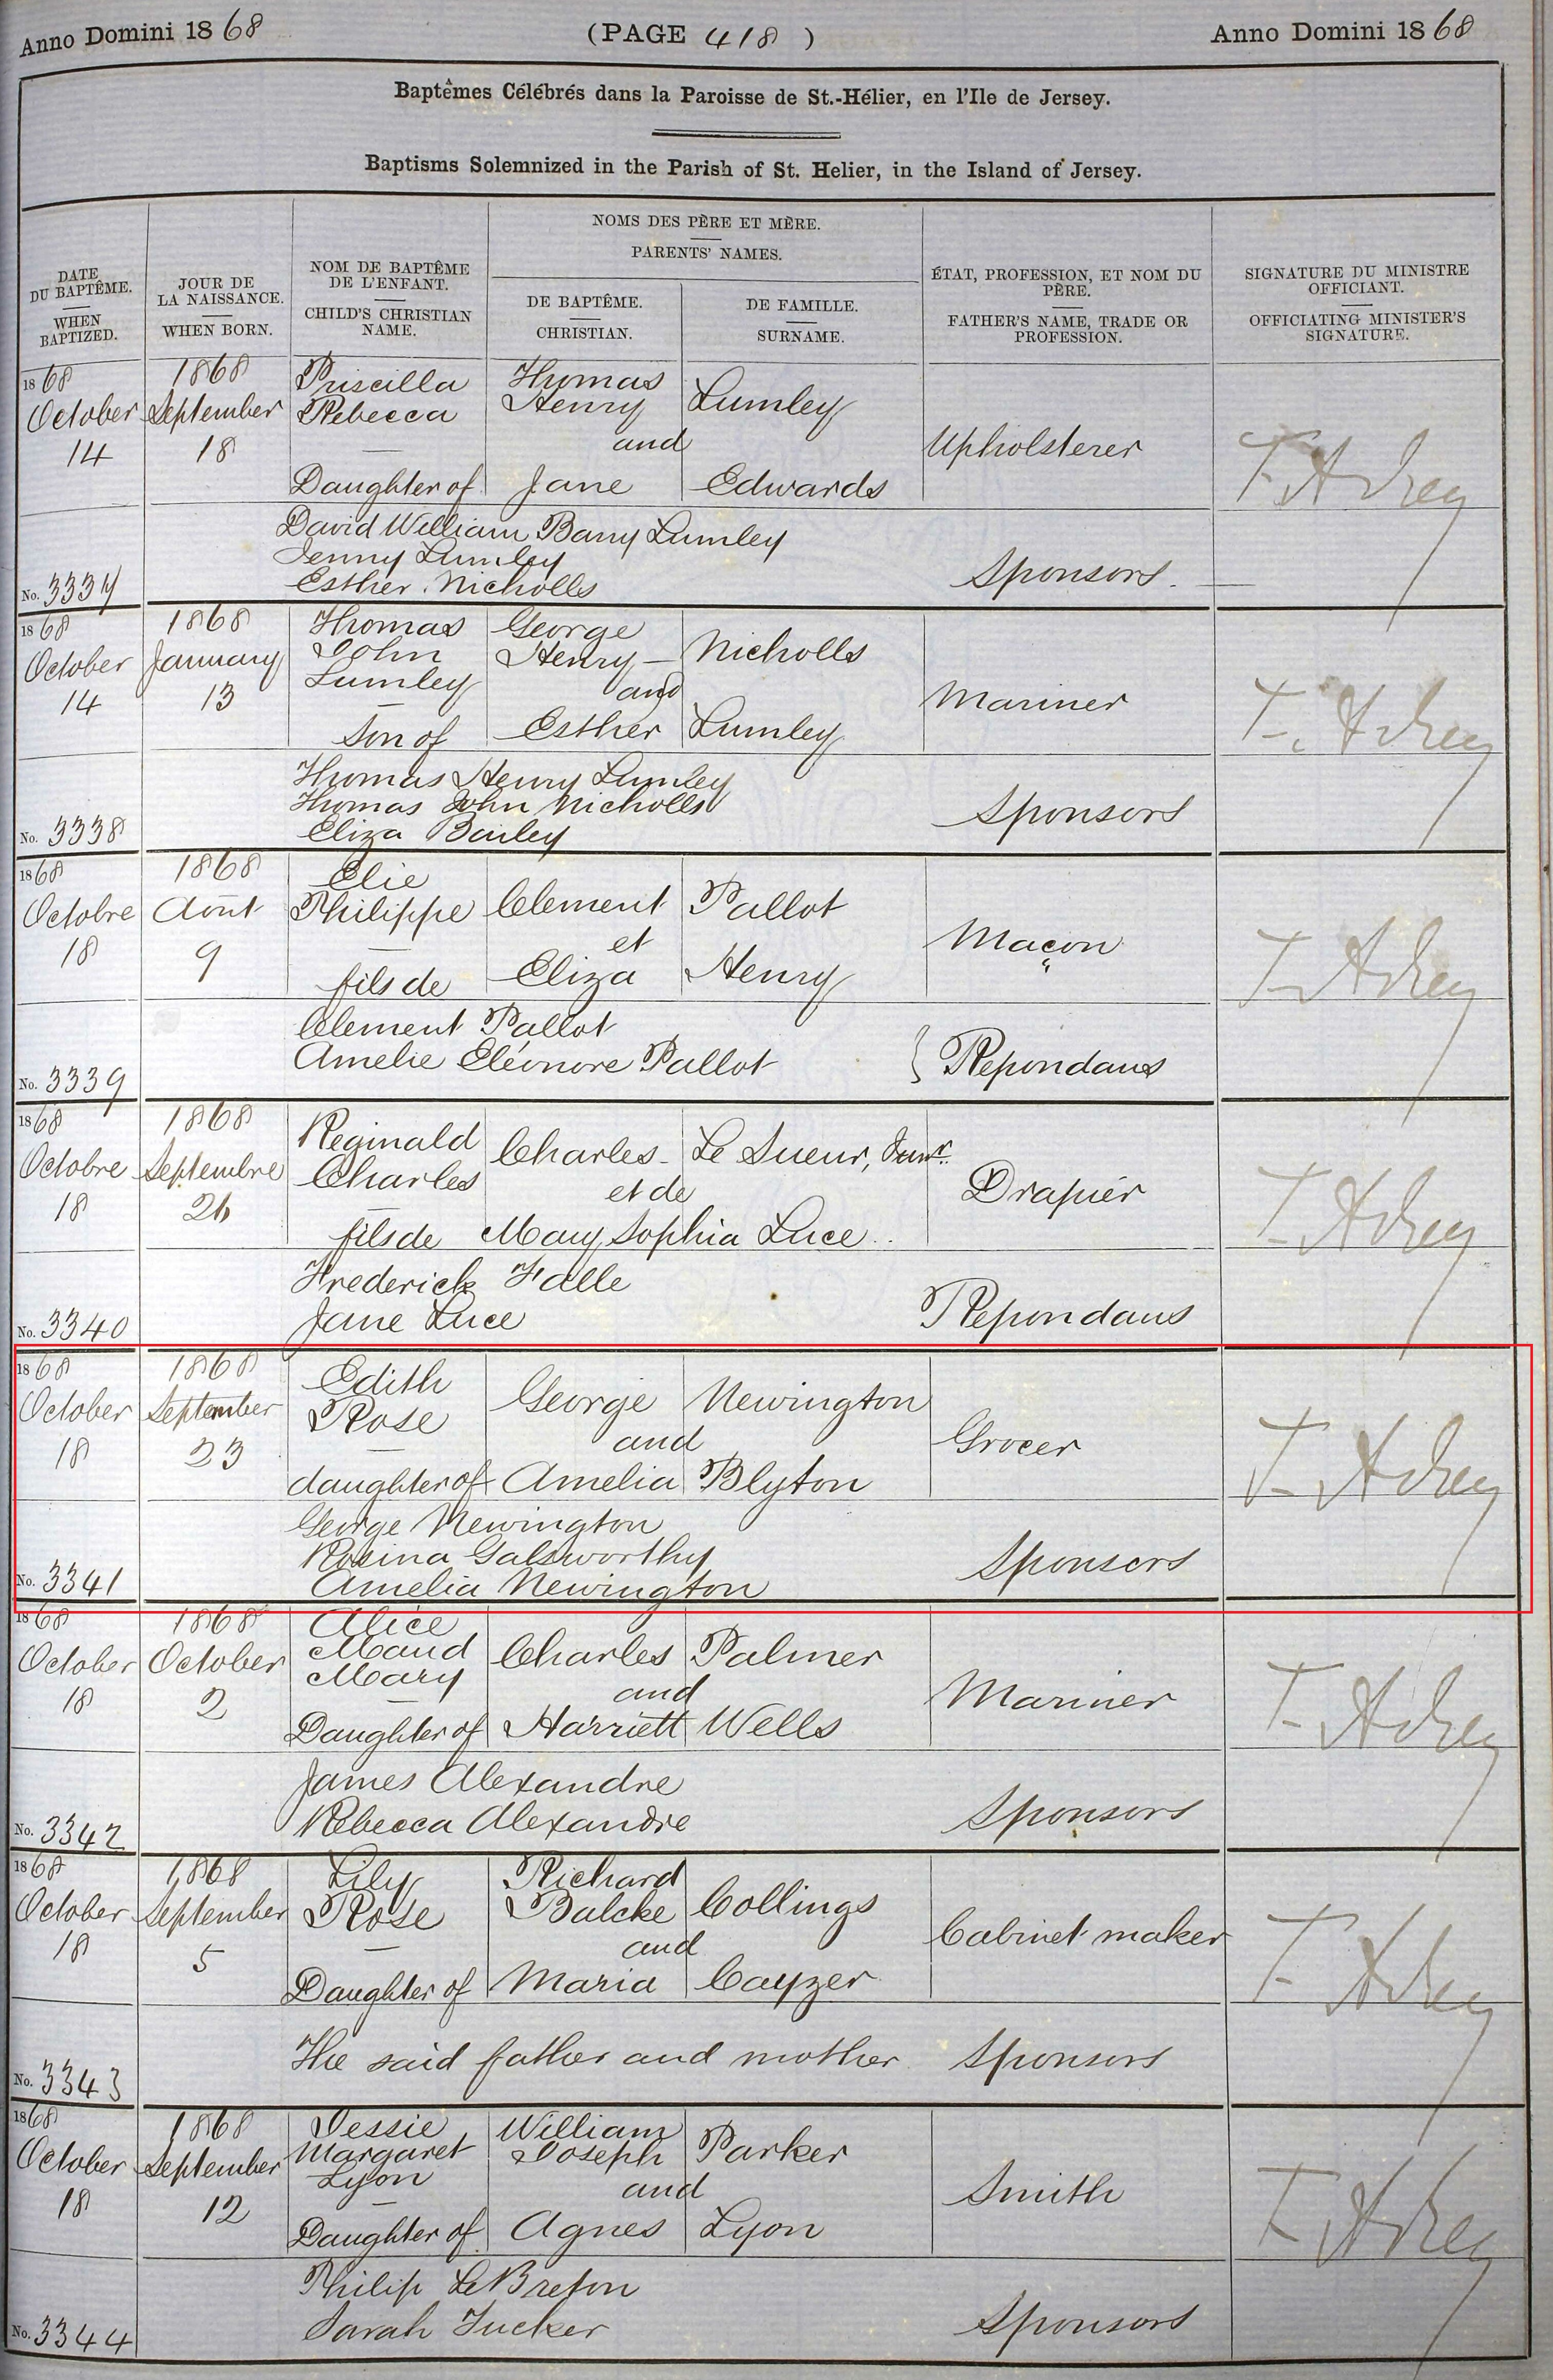 Anno Domini 1868 (PAGE 418) Anno Domini 1868
Baptêmes Célébrés dans la Paroisse de St.-Hélier, en l'Ile de Jersey.
Baptisms Solemnized in the Parish of St. Helier, in the Island of Jersey.
DATE DU BAPTÊME.
WHEN BAPTIZED.
JOUR DE LA NAISSANCE.
WHEN BORN.
NOM DE BAPTÊME DE L'ENFANT.
CHILD'S CHRISTIAN NAME.
NOMS DES PÈRE ET MÈRE.
PARENTS' NAMES.
DE BAPTÊME.
CHRISTIAN.
DE FAMILLE.
SURNAME.
ÉTAT, PROFESSION, ET NOM DU PÈRE.
FATHER'S NAME, TRADE OR PROFESSION.
SIGNATURE DU MINISTRE OFFICIANT.
OFFICIATING MINISTER'S SIGNATURE.
1868 1868 Priscilla Thomas
October September Rebecca Henry Lumley
14 18 and Upholsterer
Daughter of Jane Edwards
David William Barry Lumley
Jenny Lumley
No. 3337 Esther Nicholls Sponsors.
1868 1868 Thomas George
October January John Henry Nicholls
14 13 Lumley and Mariner
Son of Esther Lumley
Thomas Henry Lumley
Thomas John Nicholls
No. 3338 Eliza Bailey Sponsors
1868 1868 Elie
Octobre Aout Philippe Clement Pallot
18 9 et Maçon
fils de Eliza Henry
Clement Pallot
No. 3339 Amelie Eléonore Pallot } Repondans
1868 1868 Reginald
Octobre Septembre Charles Charles Le Sueur, Junr.
18 26 et de Drapier
fils de Mary Sophia Luce
Frederick Falle
No. 3340 Jane Luce Repondans
1868 1868 Edith
October September Rose George Newington
18 23 and Grocer
daughter of Amelia Blyton
George Newington
Rosina Galsworthy
No. 3341 Amelia Newington Sponsors
1868 1868 Alice
October October Maud Charles Palmer
18 2 Mary and Mariner
Daughter of Harriett Wells
James Alexandre
No. 3342 Rebecca Alexandre Sponsors
1868 1868 Lily Richard
October September Rose Balcke Collings
18 5 and Cabinet maker
Daughter of Maria Cayzer
No. 3343 The said father and mother Sponsors
1868 1868 Jessie William
October September Margaret Joseph Parker
18 12 Lyon and Smith
Daughter of Agnes Lyon
Philip Le Breton
No. 3344 Sarah Tucker Sponsors